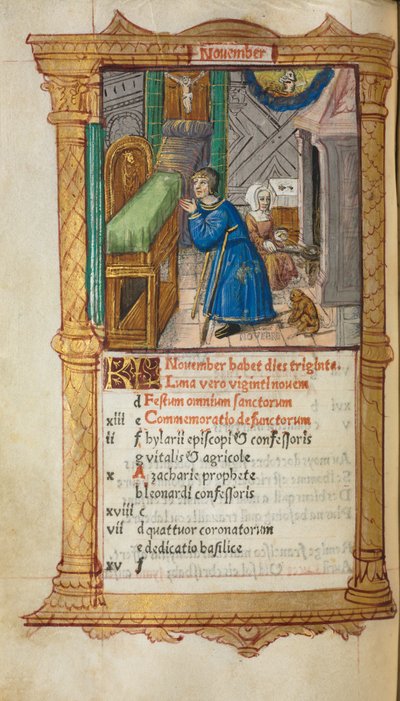 Nouember
KL Nouember habet dies triginta.
Luna vero viginti nouem
d Festum omnium sanctorum
xiii e Commemoratio defunctorum
ii f hylarii episcopi & confessoris
g vitalis & agricole
x A zacharie prophete
b leonardi confessoris
xviii c
vii d quattuor coronatorum
e dedicatio basilice
xv f